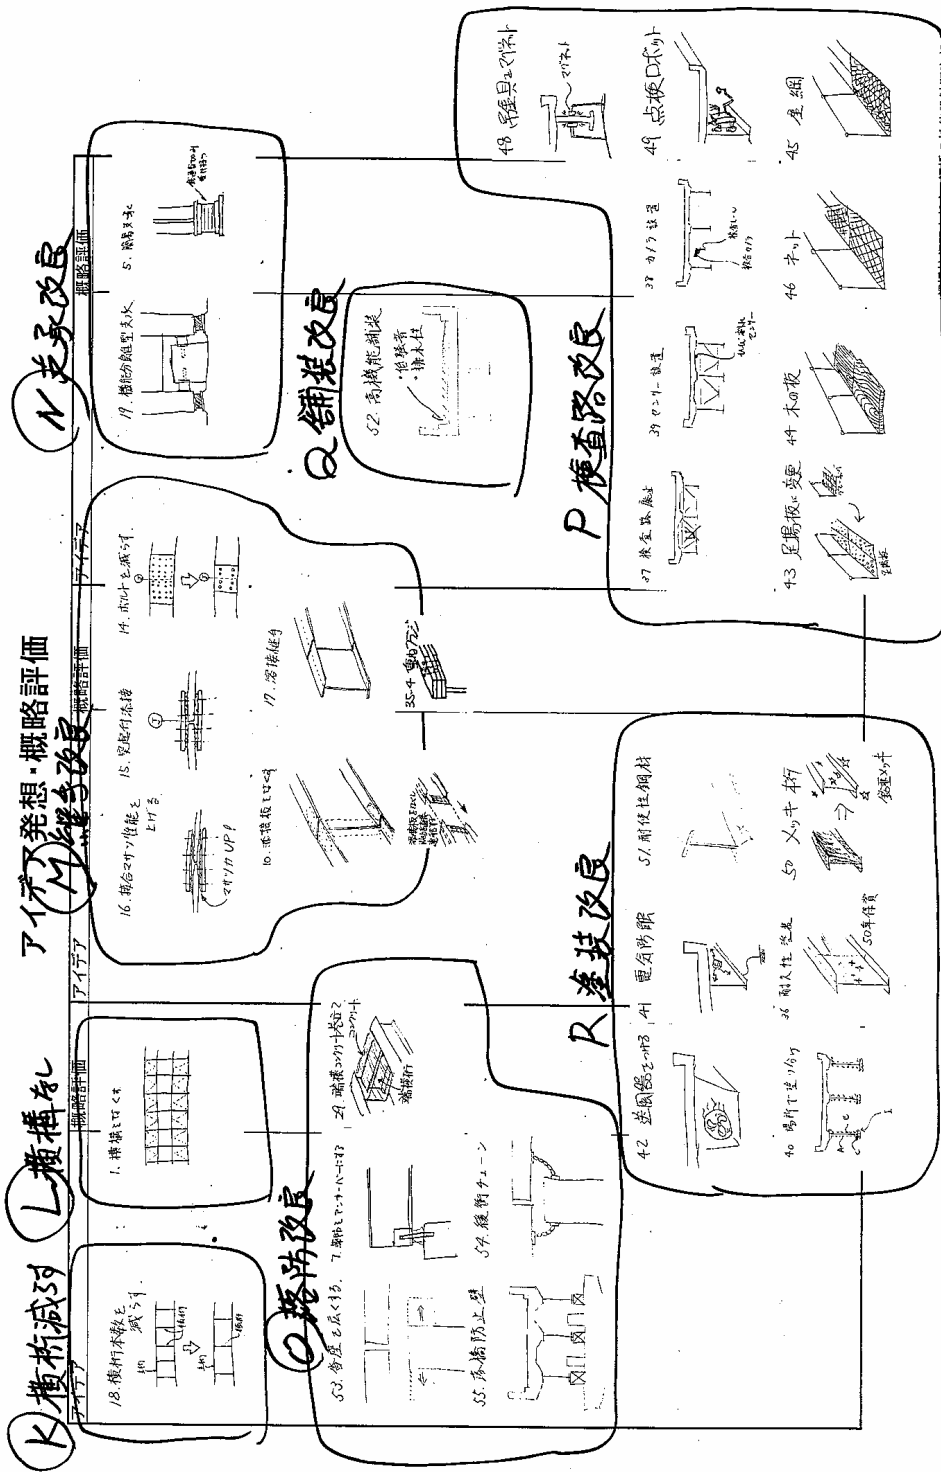 アイデア発想・概略評価
アイデア
概略評価
アイデア
概略評価
アイデア
概略評価
K 横桁減らす
18. 横桁本数を
減らす
主桁
横桁
主桁
横桁
L 横構なし
1. 横構をなくす
M 継手改良
16. 接合マサツ性能を
上げる
マサツ力UP!
15. 突起付添接
14. ボルトを減らす
10. 添接板をなくす
17. 溶接継手
35-4 重ねフランジ
N 支承改良
19. 機能分離型支承
5. 簡易支承
O 落防改良
53. 沓座を広くする
29. 端横コンクリート巻立て
コンクリート
端横桁
55. 落橋防止壁
54. 緩衝チェーン
Q 舗装改良
52. 高機能舗装
・低騒音
・排水性
P 検査路改良
37 検査路廃止
39 センサー設置
38 カメラ設置
48 吊金具をマグネット
マグネット
49 点検ロボット
43 足場板に変更
足場板
44 木の板
46 ネット
45 金網
R 塗装改良
42 送風器をつける
41 電気防蝕
51. 耐候性鋼材
40 場所で塗り分け
36 耐久性塗装
50年保質
50 メッキ桁